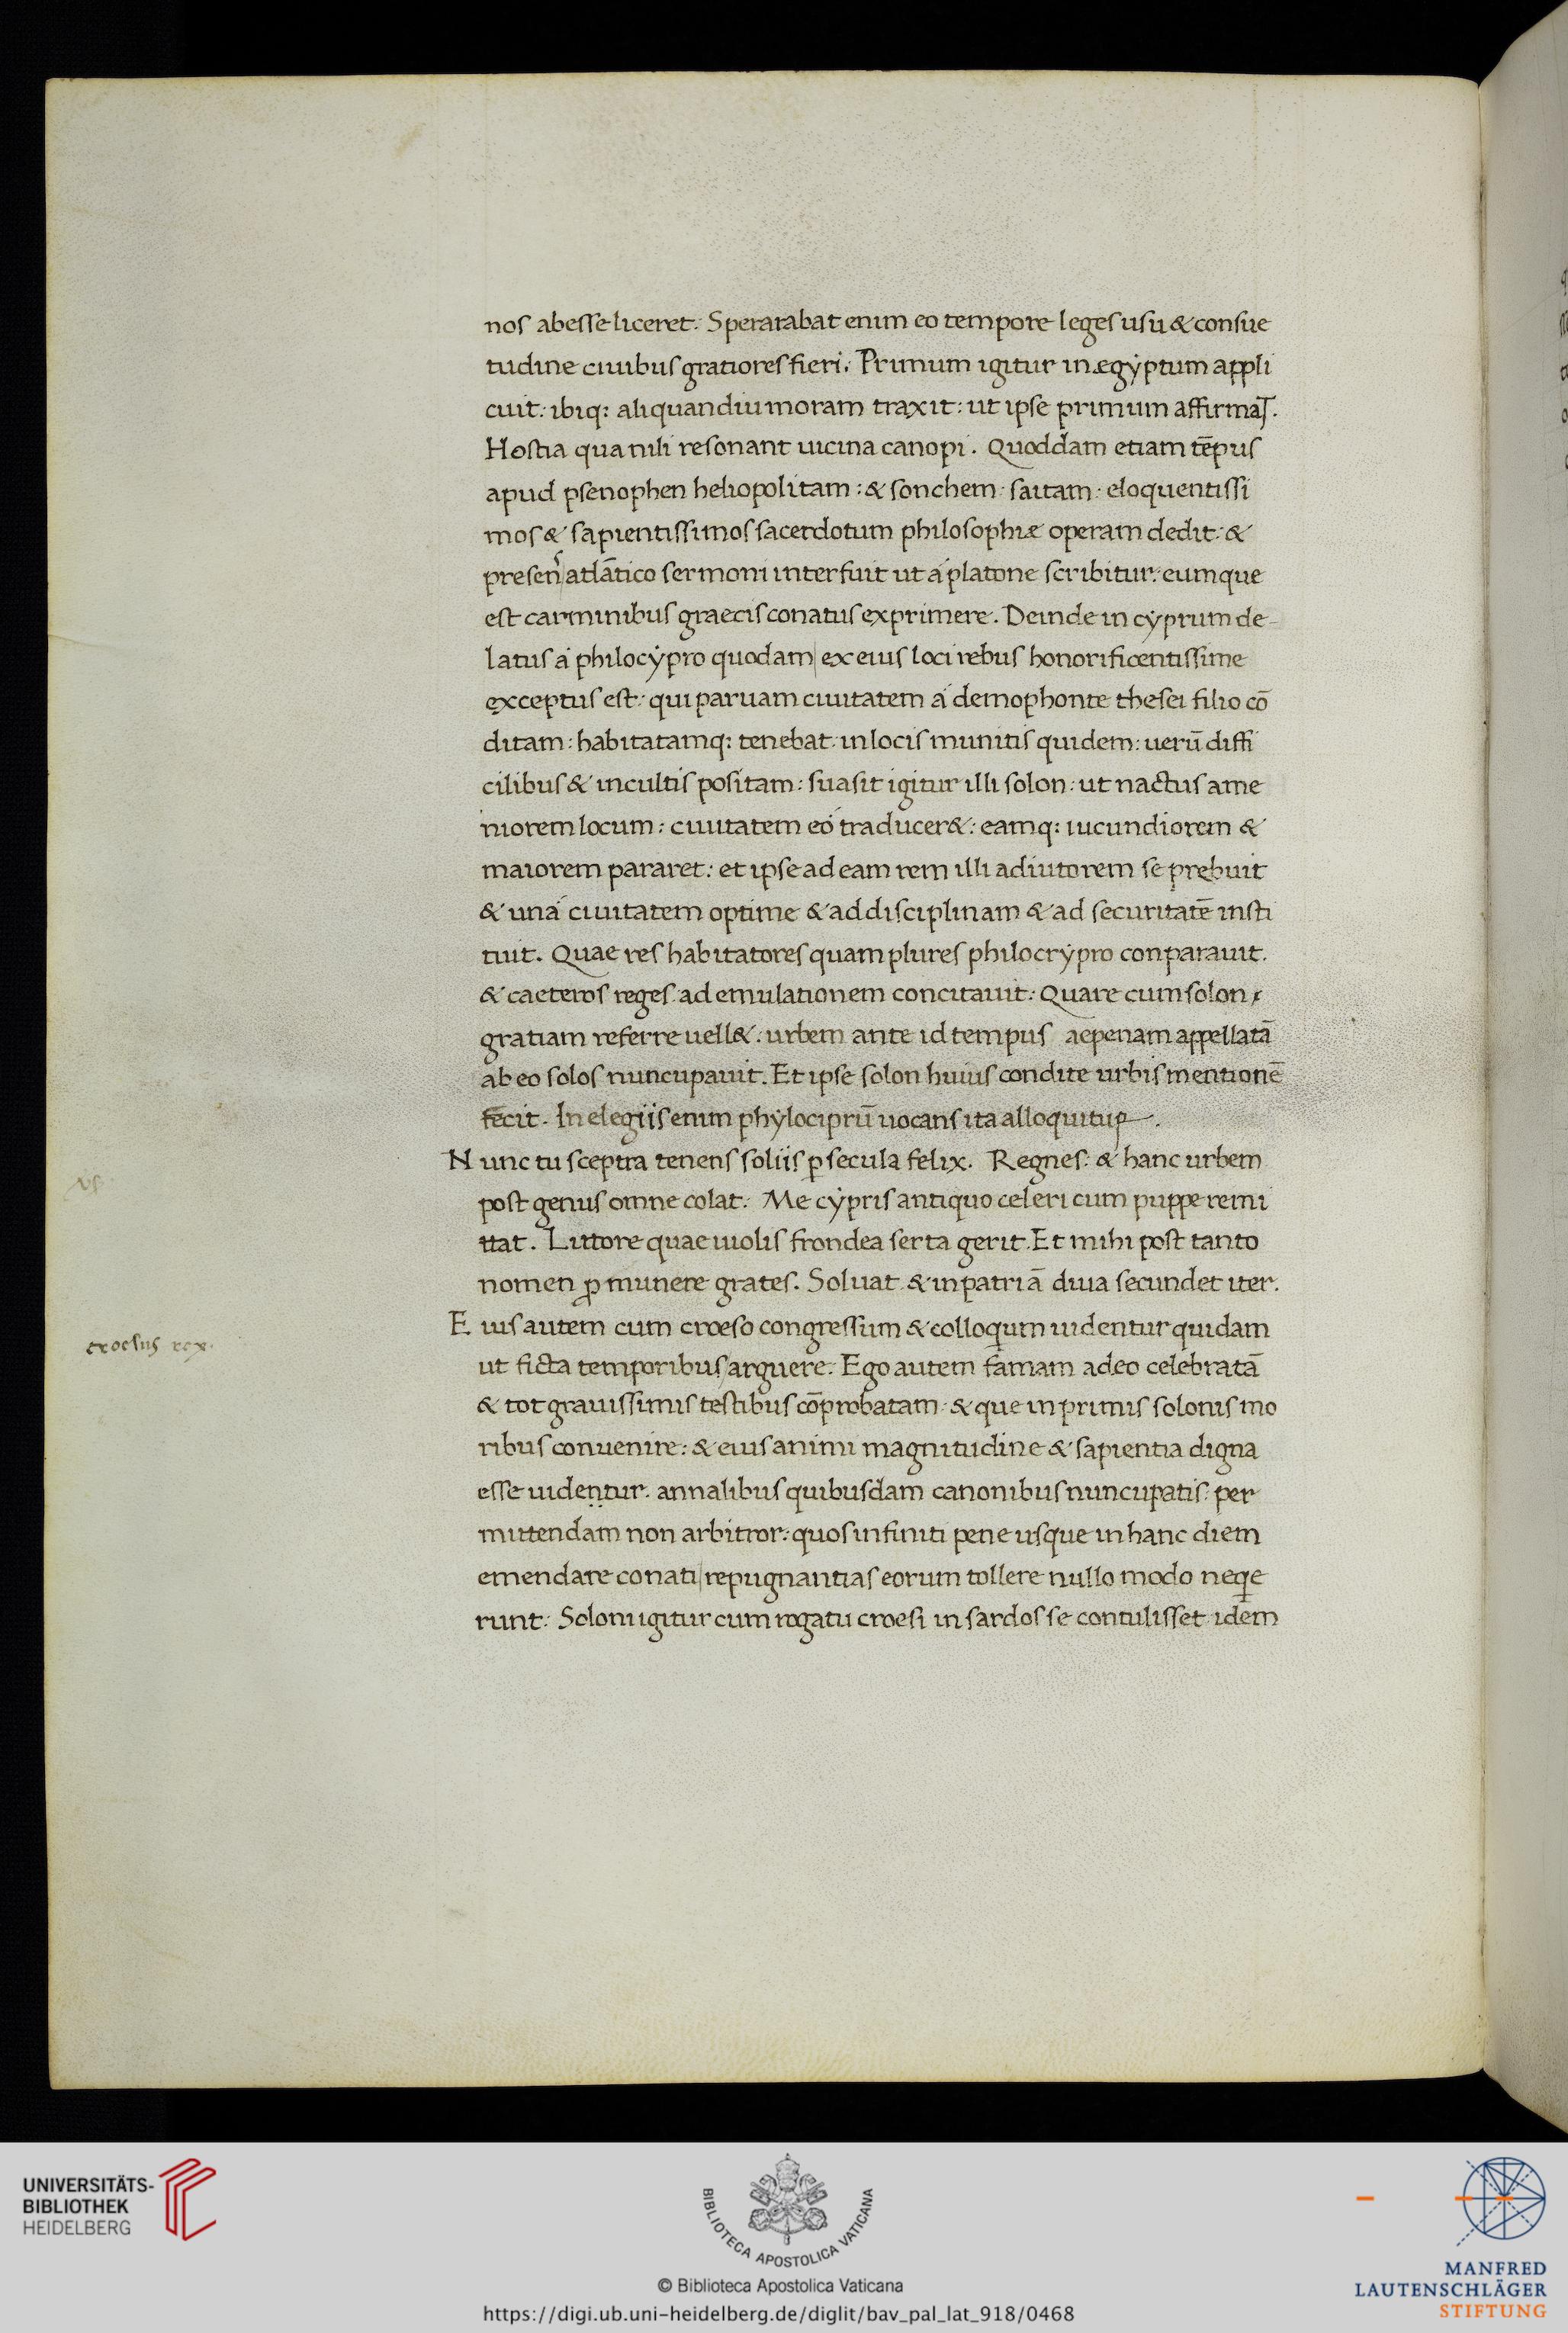 nos abesse liceret: Sperarabat enim eo tempore leges usu & consue
tudine ciuibus gratiores fieri: Primum igitur in ægÿptum appli
cuit: ibiq: aliquandiu moram traxit: ut ipse primum affirmaT.
Hostia qua nili resonant uicina canopi. Quoddam etiam tēpus
apud psenophen heliopolitam: & sonchem: saitam: eloquentissi
mos & sapientissimos sacerdotum philosophiæ operam dedit: &
presens atlātico sermoni interfuit ut á platone scribitur: eumque
est carminibus graecis conatus exprimere. Deinde in cÿprum de-
latus á philocÿpro quodam ex eius loci rebus honorificentissime
exceptus est: qui paruam ciuitatem á demophonte thesei filio cō
ditam: habitatamq: tenebat: in locis munitis quidem: uerū diffi
cilibus & incultis positam: suasit igitur illi solon: ut nactus ame
niorem locum: ciuitatem eó traducer&: eamq: iucundiorem &
maiorem pararet: et ipse ad eam rem illi adiutorem se prebuit
& uná ciuitatem optime & ad disciplinam & ad securitatē insti
tuit. Quae res habitatores quam plures philocrÿpro conparauit.
& caeteros reges ad emulationem concitauit: Quare cum solon
gratiam referre uell&: urbem ante id tempus aepenam appellatā
ab eo solos nuncupauit. Et ipse solon huius condite urbis mentionē
fecit. In elegiis enim phÿlociprū uocans ita alloquitur.
Nunc tu sceptra tenens soliis ꝑ secula felix. Regnes: & hanc urbem
vs
post genus omne colat: Me cÿpris antiquo celeri cum puppe remi
ttat. Littore quae uiolis frondea serta gerit. Et mihi post tanto
nomen ꝓ munere grates. Soluat & in patriā diua secundet iter.
Eius autem cum croeso congressum & colloqium uidentur quidam
croesus rex.
ut ficta temporibus arguere: Ego autem famam adeo celebratā
& tot grauissimis testibus cōprobatam: & que in primis solonis mo
ribus conuenire: & eius animi magnitudine & sapientia digna
esse uidentur. annalibus quibusdam canonibus nuncupatis: per
mittendam non arbitror: quos infiniti pene usque in hanc diem
emendare conati repugnantias eorum tollere nullo modo neqie
runt: Soloni igitur cum rogatu croesi in sardos se contulisset idem
UNIVERSITÄTS-
BIBLIOTHEK
HEIDELBERG
BIBLIOTECA APOSTOLICA VATICANA
© Biblioteca Apostolica Vaticana
https://digi.ub.uni-heidelberg.de/diglit/bav_pal_lat_918/0468
MANFRED
LAUTENSCHLÄGER
STIFTUNG